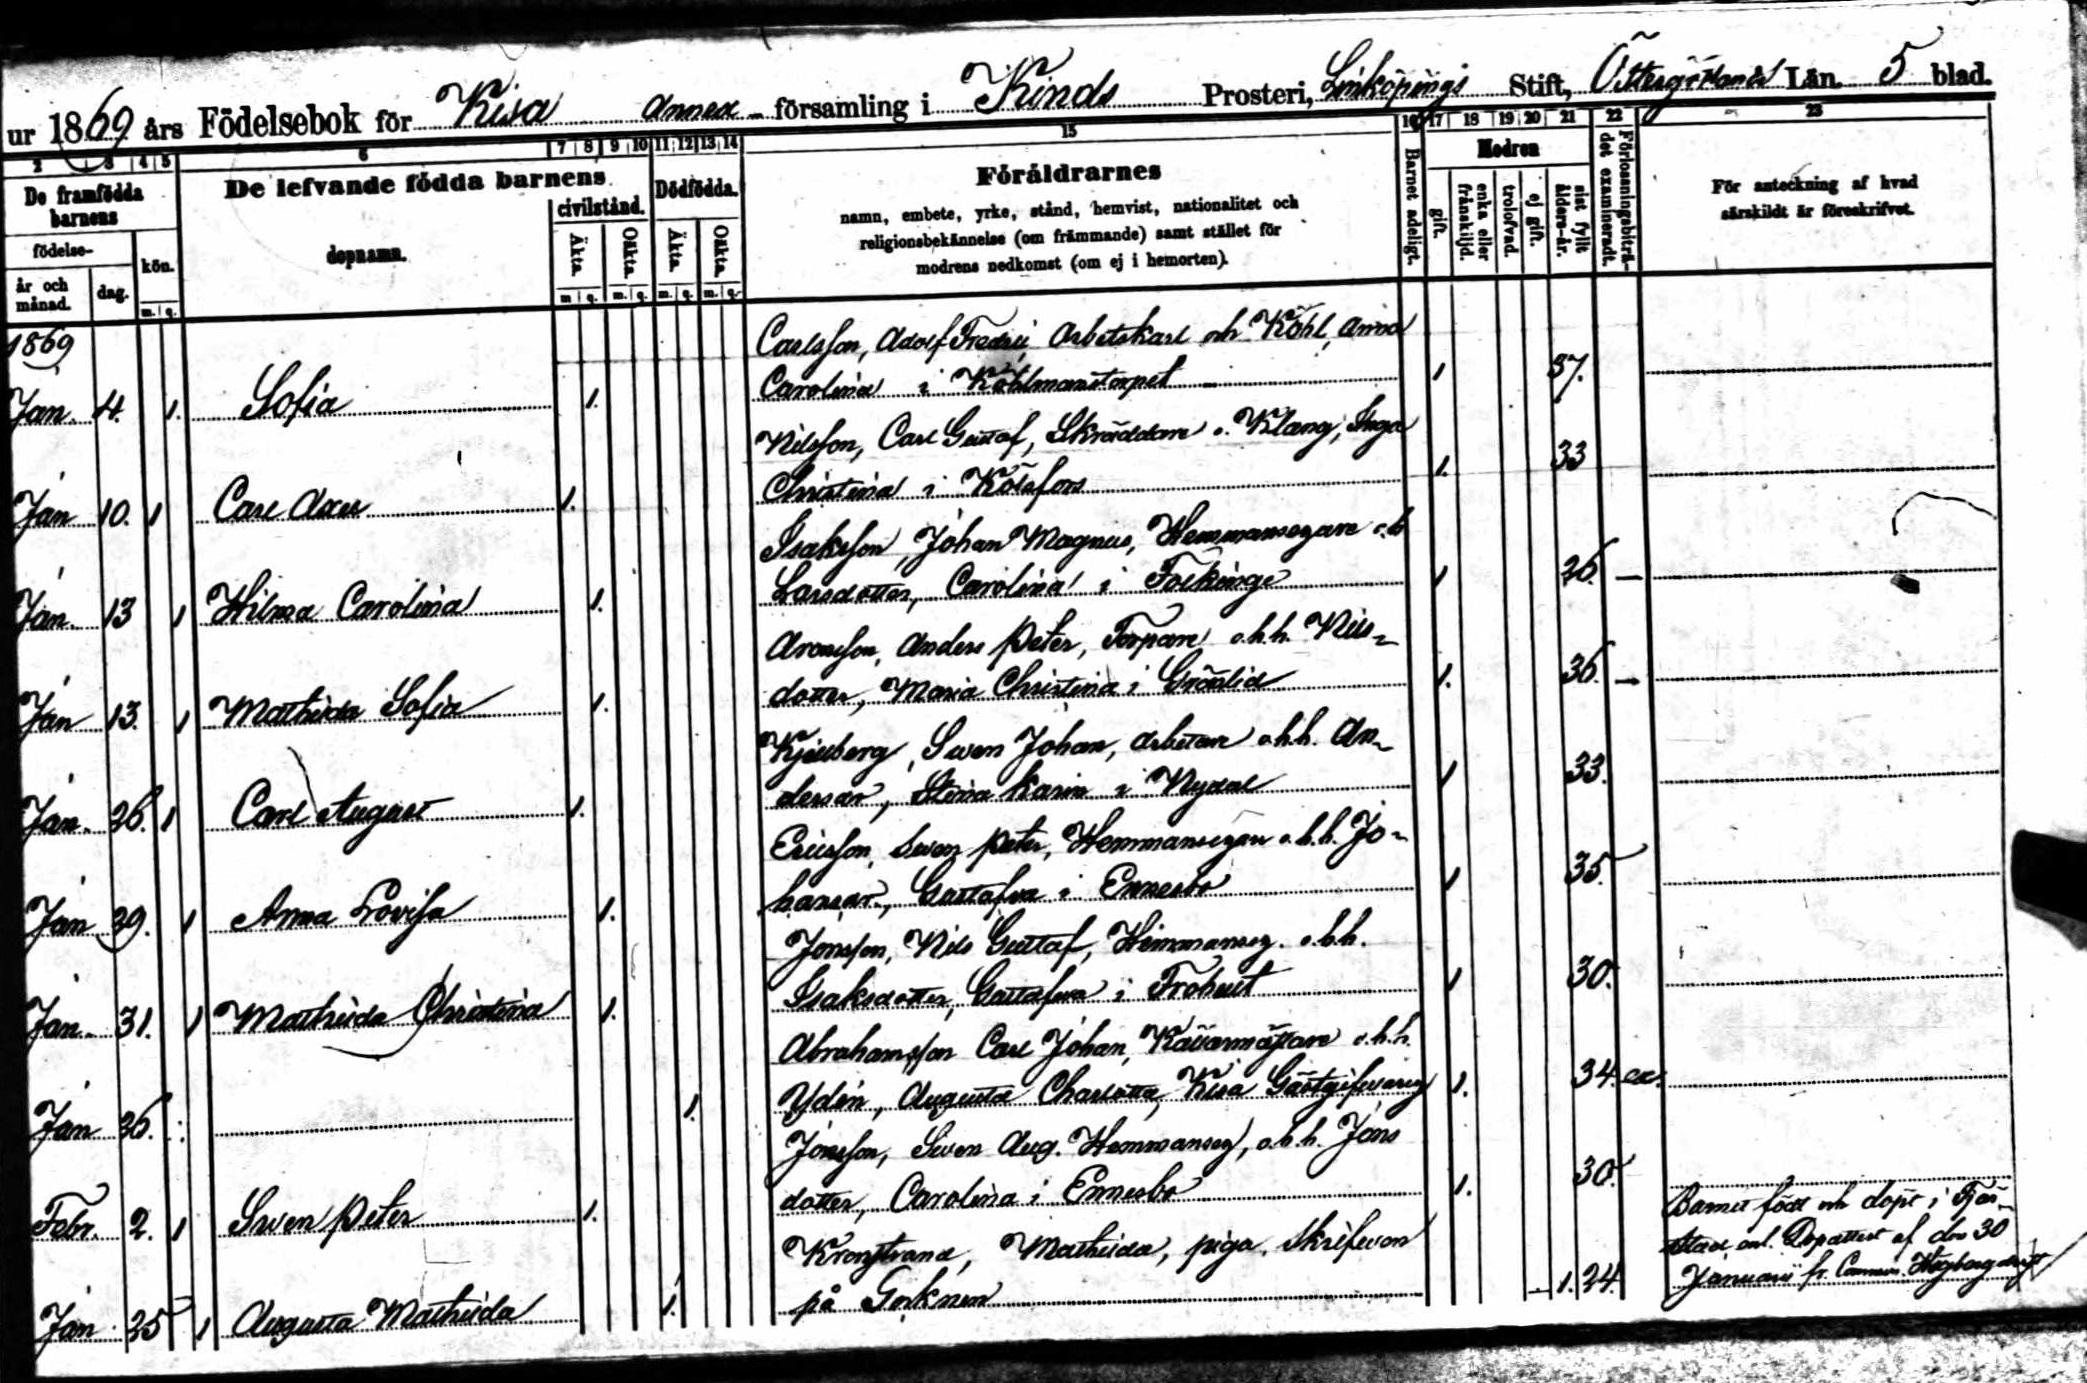 ur 1869 års Födelsebok för Kisa Annex församling i Kinds Prosteri, Linköpings Stift, Östergötlands Län. 5 blad.
2 3 4 5 6 7 8 9 10 11 12 13 14 15 16 17 18 19 20 21 22 23
De framfödda barnens
födelse-
år och månad.
dag.
kön.
m. q.
De lefvande födda barnens
dopnamn.
civilstånd.
Äkta.
Oäkta.
m q. m. q.
Dödfödda.
Äkta.
Oäkta.
m. q. m. q.
Föräldrarnes
namn, embete, yrke, stånd, hemvist, nationalitet och
religionsbekännelse (om främmande) samt stället för
modrens nedkomst (om ej i hemorten).
Barnet adeligt.
Modren
gift.
enka eller frånskiljd.
trolofvad.
ej gift.
sist fyllt ålders-år.
Förlossningsbiträdet examineradt.
För anteckning af hvad
särskildt är föreskrifvet.
1869
Carlsson, Adolf Fredric Arbetskarl och Köhl, Anna
Jan. 4. 1. Sofia 1. Carolina i Köhlmanstorpet 1 37.
Nilsson, Carl Gustaf, Skräddare o. Klang, Inga
Jan 10. 1 Carl Axel 1. Christina i Kölefors 1. 33
Isaksson, Johan Magnus, Hemmansegare o.h
Jan. 13 1 Hilma Carolina 1. Larsdotter, Carolina i Föllingö 1 26.
Aronsson, Anders Peter, Torpare o.h.h. Nils-
Jan 13. 1 Mathilda Sofia 1. dotter, Maria Christina i Grönlid 1. 36.
Kjellberg, Swen Johan, Arbetare o.h.h. An-
Jan. 26. 1 Carl August 1. dersdr, Stina Karin i Nydal 1 33.
Ericsson, Swen Peter, Hemmansegare o.h.h. Jo-
Jan 29. 1 Anna Lovisa 1. hansdr., Gustafva i Ennesbo 1 35.
Jonsson, Nils Gustaf, Hemmanseg. o.h.h.
Jan. 31. 1 Mathilda Christina 1. Isaksdotter, Gustafva i Frohult 1 30.
Abrahamsson Carl Johan, Källarmästare o.h.h.
Jan 26. 1. Ydén, Augusta Charlotta, Kisa Gästgifvareg 1. 34. ex.
Jonsson, Swen Aug. Hemmanseg, o.h.h. Jons
Febr. 2. 1 Swen Peter 1. dotter, Carolina i Ennesbo 1. 30.
Kronstrand, Mathilda, piga, Skrifven
Barnet född och döpt i
Dopattest af den 30
Jan 25 1 Augusta Mathilda 1. på 1. 24. Januarii fr. Högberg